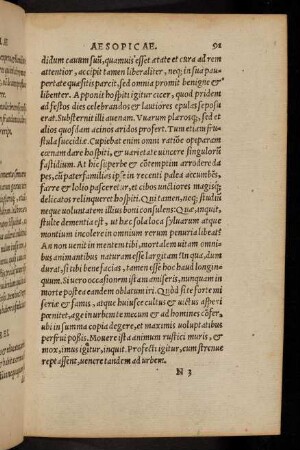 AESOPICAE. 91
didum cauum suũ, quamuis esset ætate et cura ad rem
attentior, accipit tamen liberaliter, neq; in sua pau-
pertate quᵭ sitis parcit, sed omnia promit benigne &
libenter. Apponit hospiti igitur cicer, quod pridem
ad festos dies celebrandos & lautiores epulas seposu
erat. Substernit illi auenam. Vuarum plærosq;, sed et
alios quosdam acinos aridos profert. Tum etiam fru-
stula succidiæ. Cupiebat enim omni ratiõe operam
coenam dare hospiti, & uarietate uincere singulorũ
fastidium. At hic superbe & cõtemptim arrodere da
pes, cũ pater familias ipse in recenti palea accumbẽs,
farre & lolio pasceretur, et cibos unctiores magisq;
delicatos relinqueret hospiti. Qui tamen, neq; studiũ
neque uoluntatem illius boni consulens: Quæ, inquit,
stulte dementia est, ut hæc sola loca syluarum atque
montium incolere in omnium rerum penuria libeat?
An non uenit in mentem tibi, mortalem uitam omni-
bus animantibus naturam esse largitam? In qua, dum
durat, si tibi benefacias, tamen esse hoc haud longin
quum. Si uero occasionem istam amiseris, nunquam in
morte posteà eandem oblatum iri. Quòd si te forte mi
seriæ & famis, atque huiusce cultus & uictus asperi
pœnitet, age in urbem te mecum & ad homines cõfer,
ubi in summa copia degere, et maximis uoluptatibus
perfrui poßis. Mouere ista animum rustici muris, &
mox, imus igitur, inquit. Profecti igitur, cum strenue
reptassent, uenere tandem ad urbem.
N 3